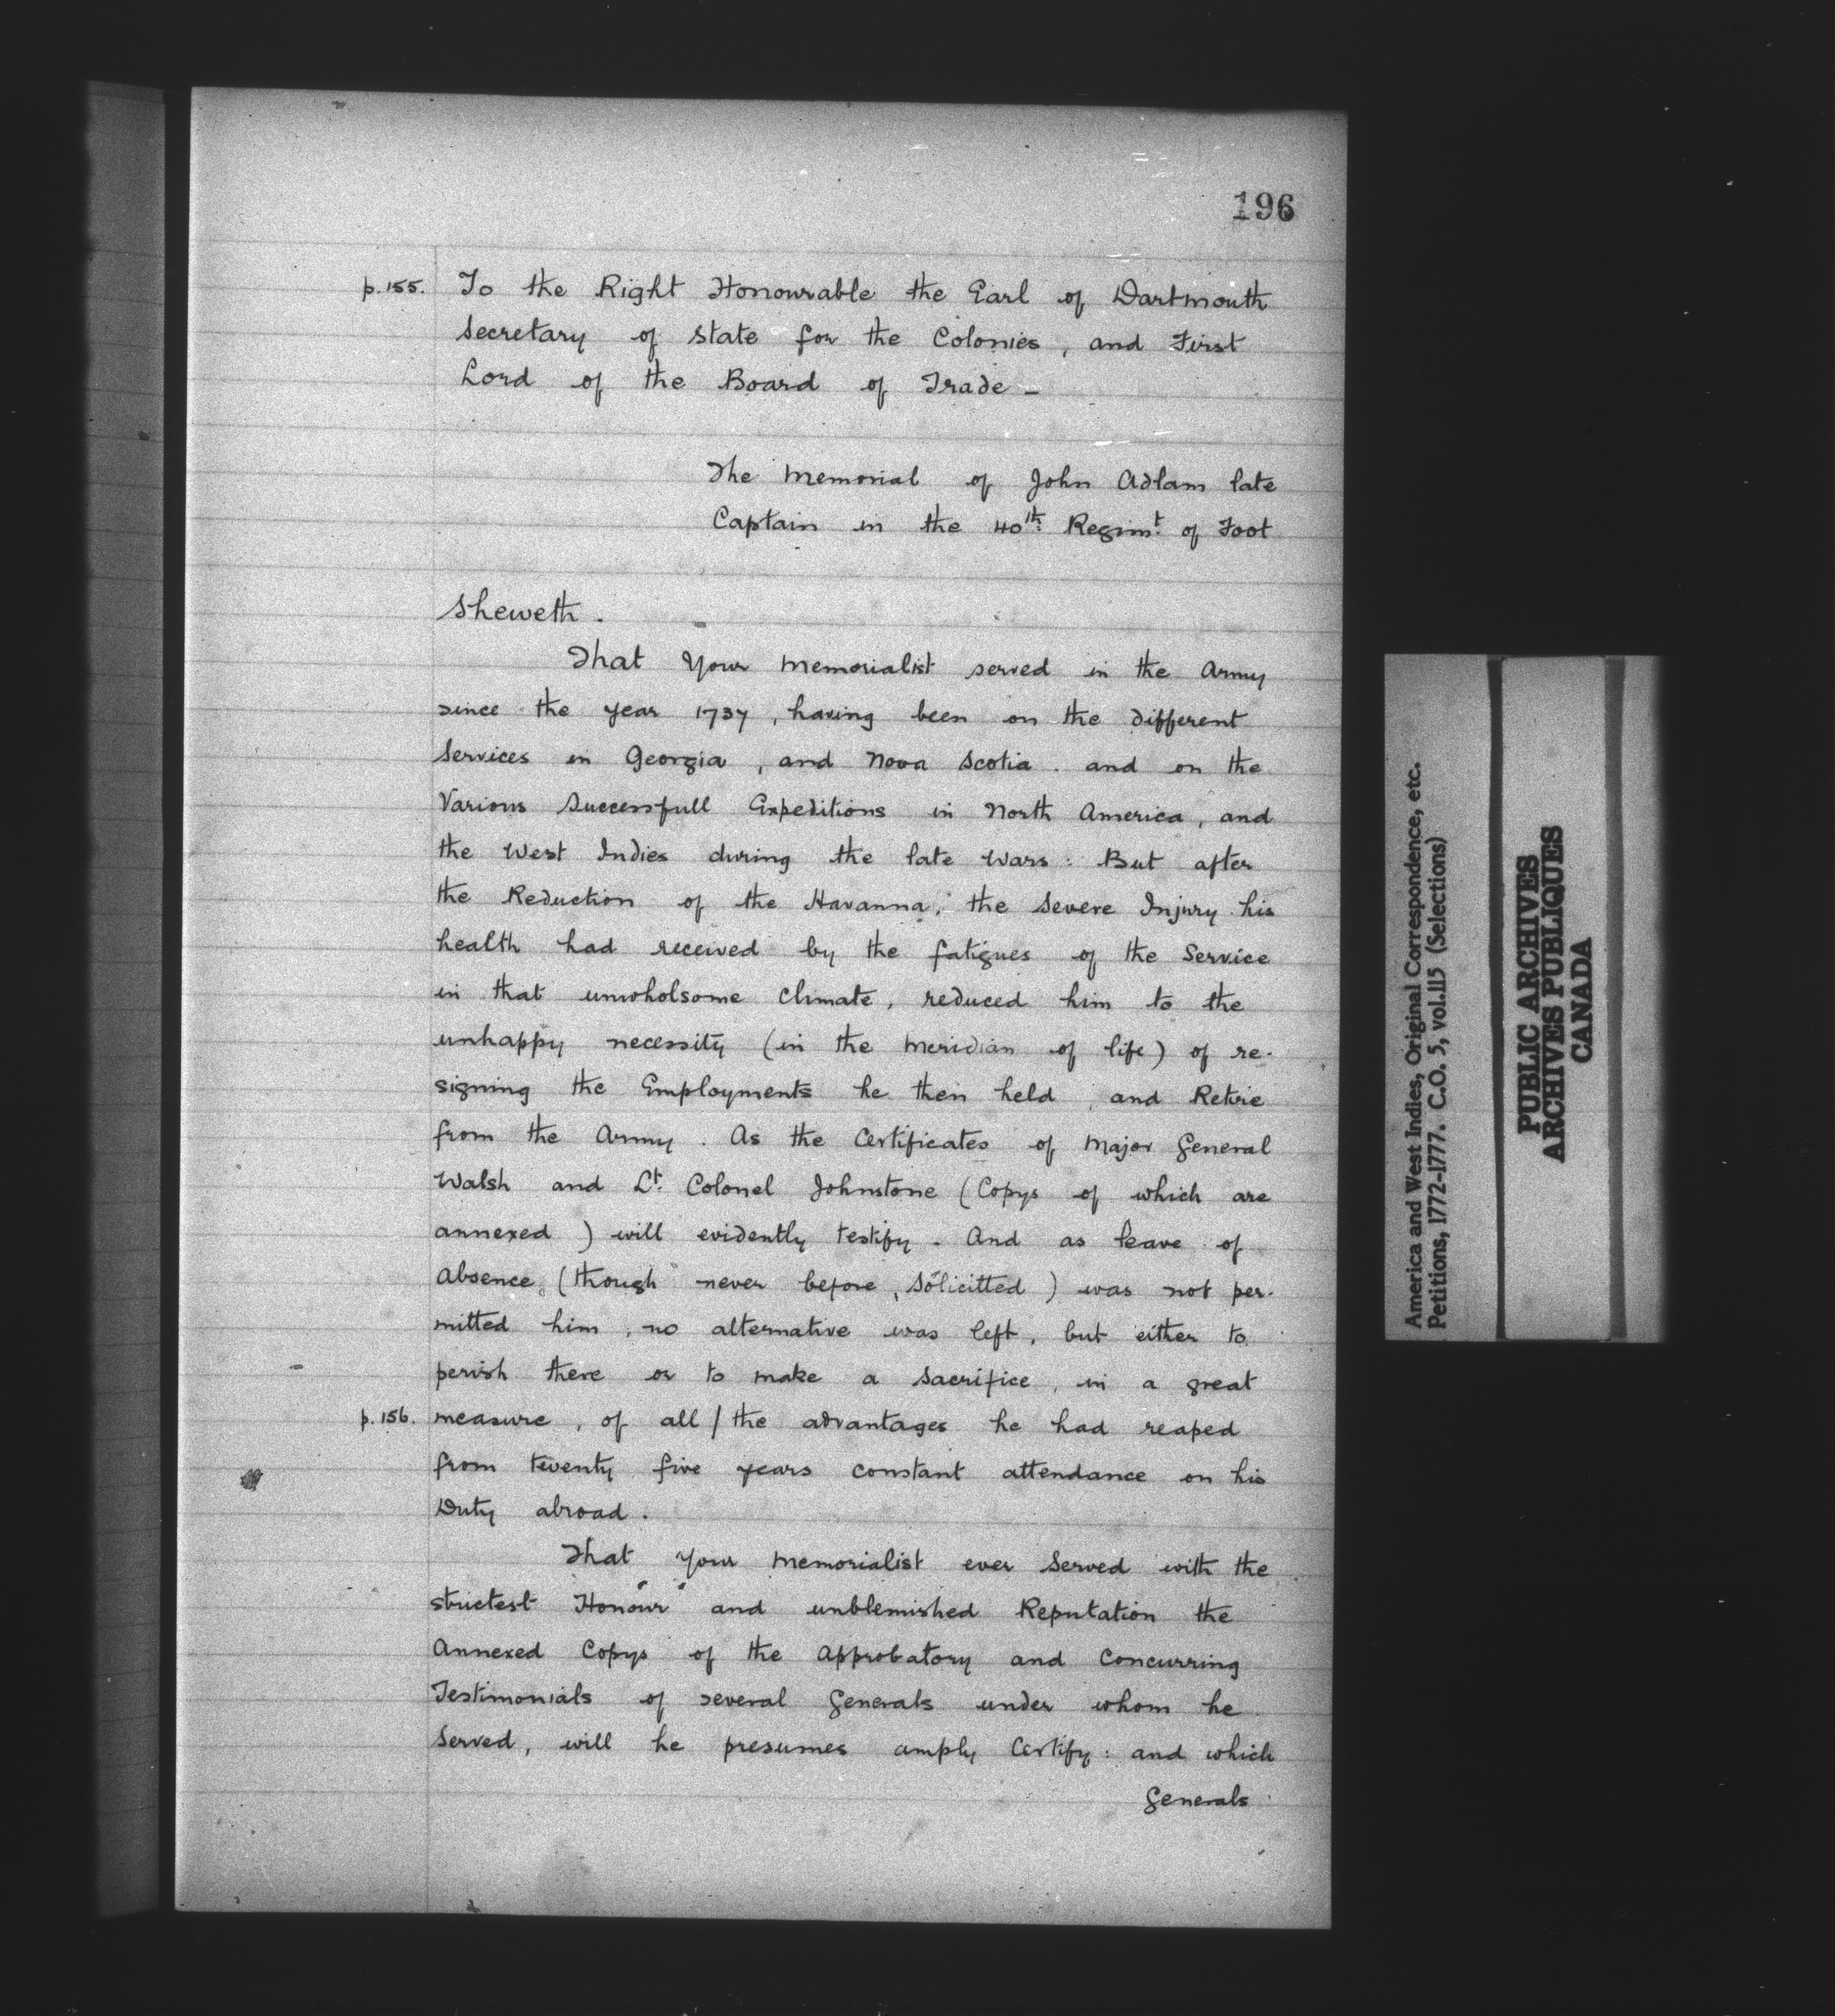 196
p.155. To the Right Honourable the Earl of Dartmouth
Secretary of State for the Colonies, and First
Lord of the Board of Trade -
The Memorial of John Adlam late
Captain in the 40th Regimt of Foot
Sheweth.
That Your Memorialist served in the Army
since the year 1737, having been on the different
Services in Georgia, and Nova Scotia. and on the
Various Successfull Expeditions in North America, and
the West Indies during the late Wars: But after
the Reduction of the Havanna, the Severe Injury his
health had received by the fatigues of the Service
in that unwholsome Climate, reduced him to the
unhappy necessity (in the Meridian of life) of re-
signing the Employments he then held, and Retire
from the Army. As the Certificates of Major General
Walsh and Lt. Colonel Johnstone (Copys of which are
annexed) will evidently testify. And as leave of
Absence, (though never before, Solicitted) was not per-
mitted him, no alternative was left, but either to
perish there or to make a Sacrifice, in a great
p.156. measure, of all / the advantages he had reaped
from twenty five years constant attendance on his
Duty abroad.
That Your Memorialist ever Served with the
strictest Honour and unblemished Reputation the
Annexed Copys of the Approbatory and Concurring
Testimonials of several Generals under whom he
Served, will he presumes amply Certify: and which
Generals
America and West Indies, Original Correspondence, etc.
Petitions, 1772-1777. C.O. 5, vol.115 (Selections)
PUBLIC ARCHIVES
ARCHIVES PUBLIQUES
CANADA